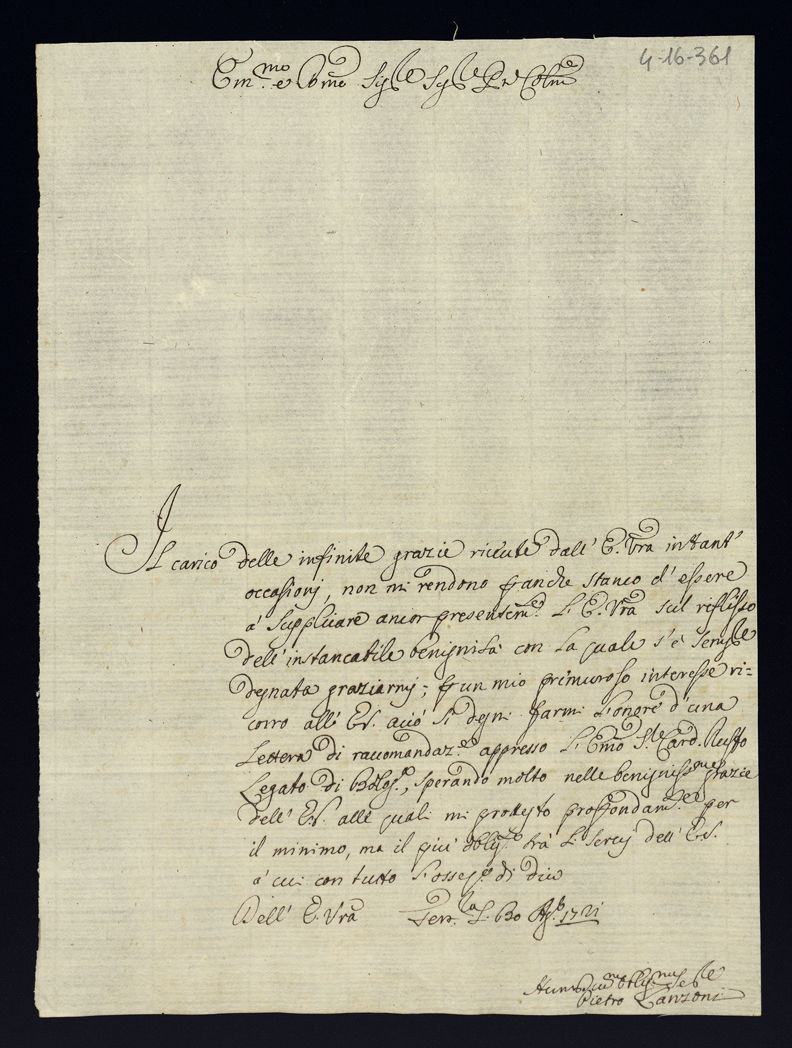 4-16-361
Em.mo e R.mo Sig.re Sig.re P.ne Col.mo
Il carico delle infinite grazie riceute dall' E. Vra in tant'
occasionj, non mi rendono p anche stanco d' essere
a' supplicare ancor presentem.e L' E. Vra sul riflesso
dell' instancabile benignità con la quale s' è sempre
degnata graziarmj; p un mio premuroso interesse ri=
corro all' E.V. acciò si degni farmi l' onore d' una
Lettera di raccomandaz.e appresso L' Emo S.r Card. Ruffo
Legato di Bolog.a, sperando molto nelle benigniss.me grazie
dell' E.V. alle quali mi protesto profondam.e per
il minimo, ma il più obblig.o trà L' servj dell' E.V.
a' cui con tutto l' osseq.o di dico
Dell' E. Vra Agto 1721
Pietro Lanzoni